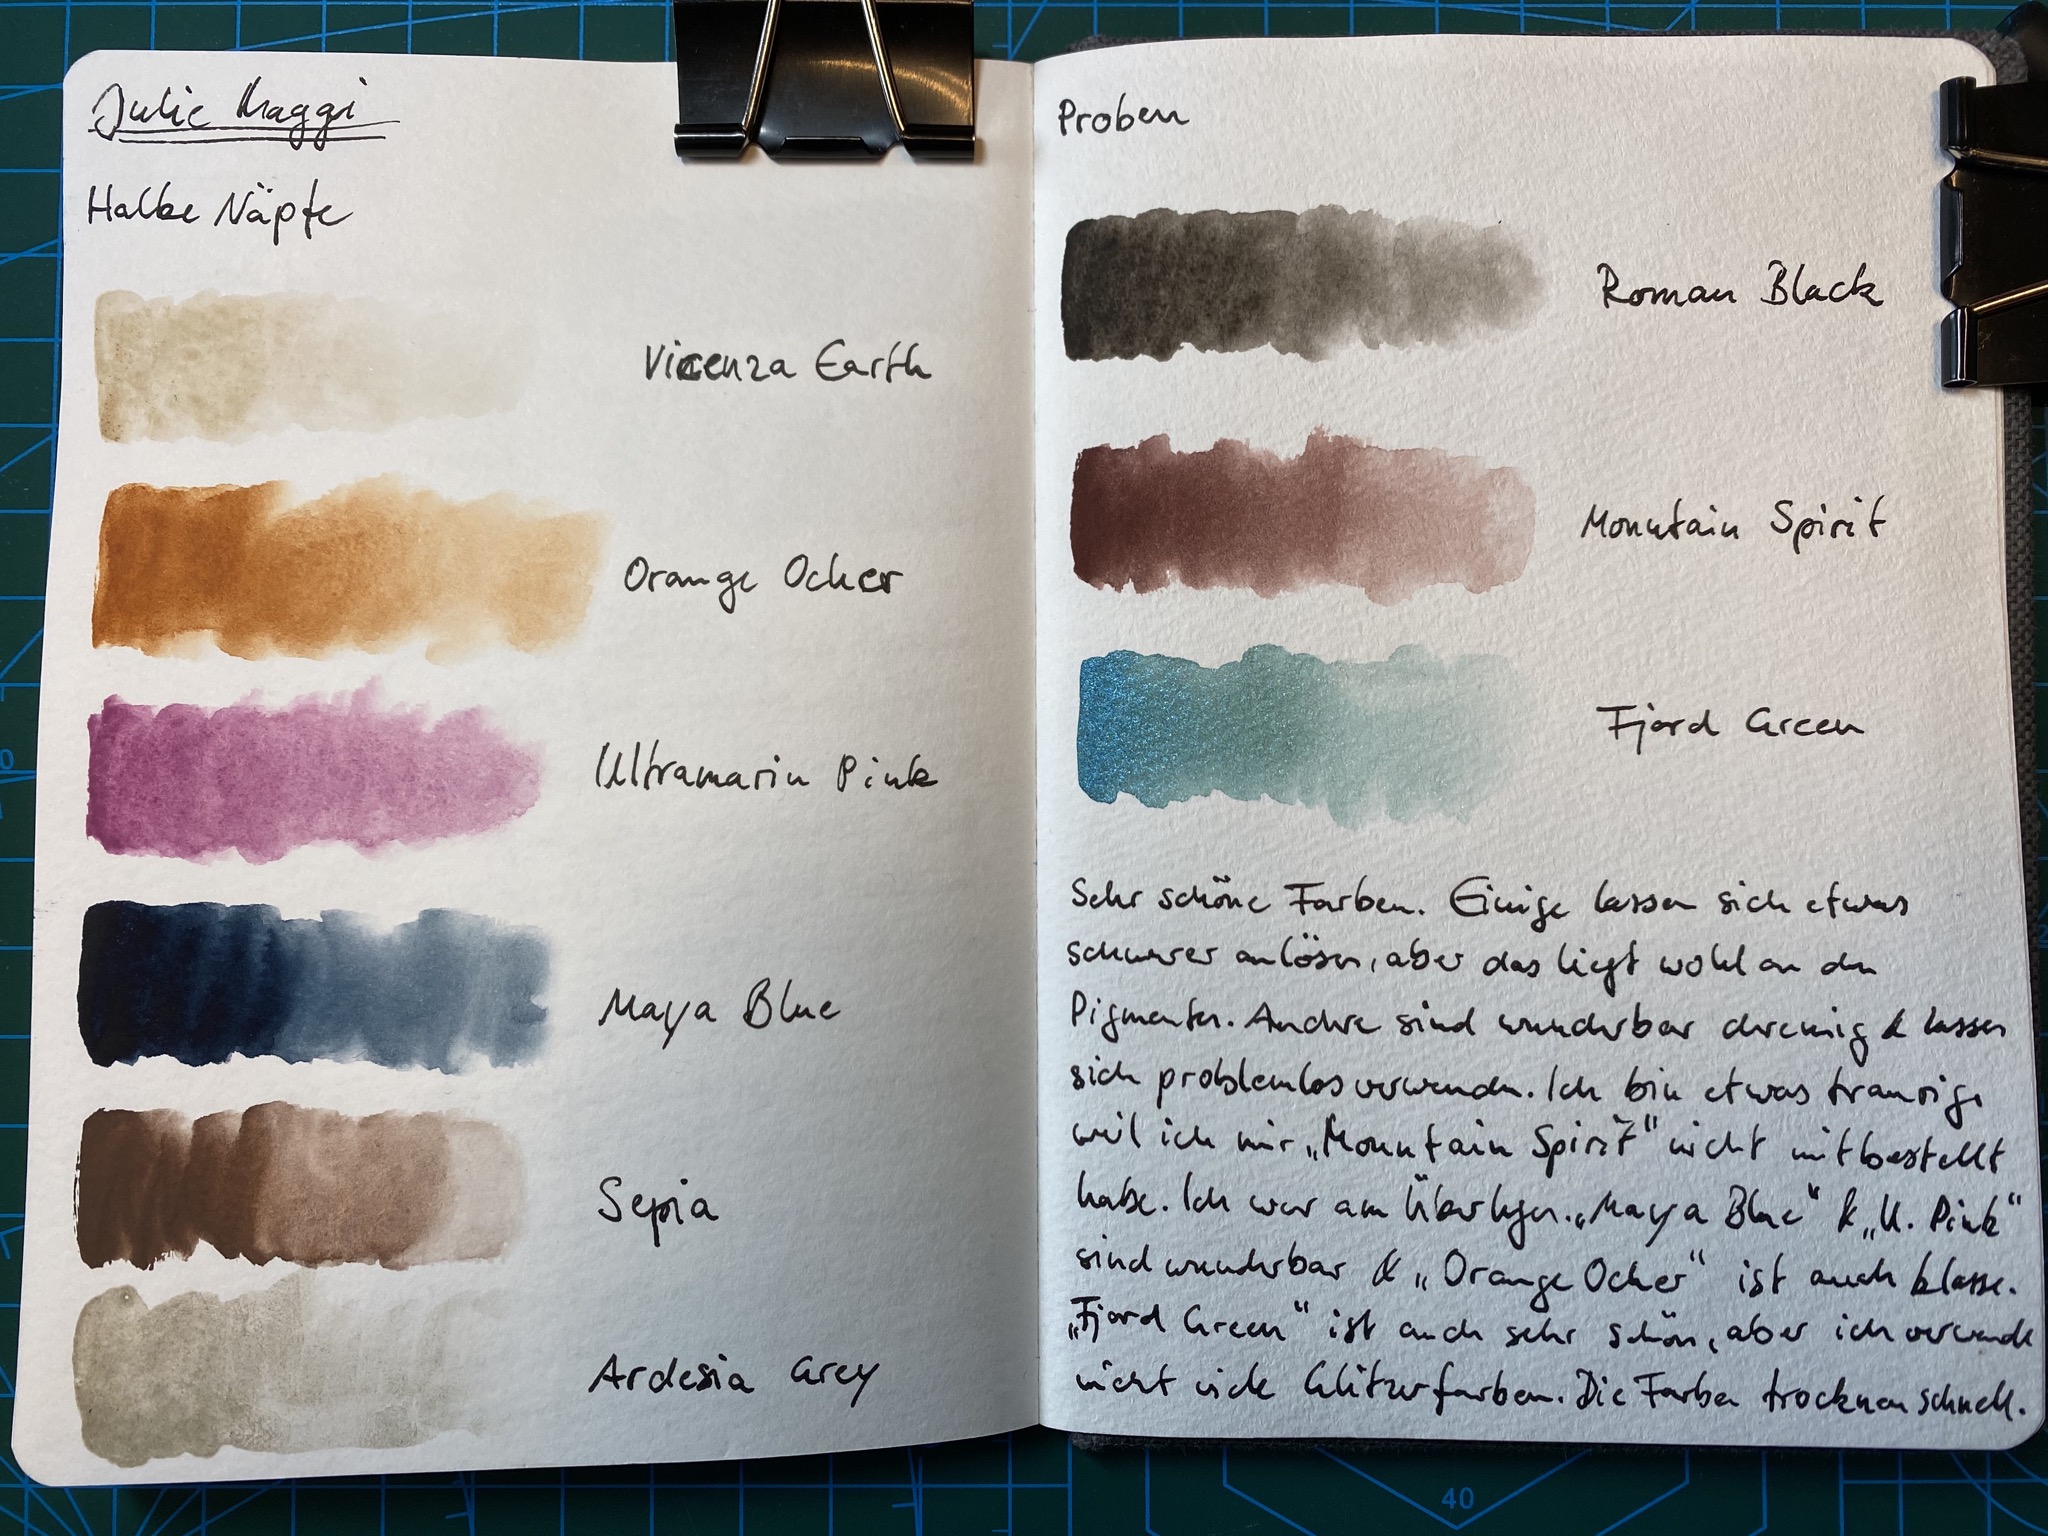 Julie Maggi
Halbe Näpfe
Vicenza Earth
Orange Ocher
Ultramarin Pink
Maya Blue
Sepia
Ardesia Grey
Proben
Roman Black
Mountain Spirit
Fjord Green
Sehr schöne Farben. Einige lassen sich etwas
schwerer anlösen, aber das liegt wohl an den
Pigmenten. Andere sind wunderbar cremig & lassen
sich problemlos verwenden. Ich bin etwas traurig,
weil ich mir „Mountain Spirit“ nicht mitbestellt
habe. Ich war am Überlegen. „Maya Blue“ & „U. Pink“
sind wunderbar & „Orange Ocher“ ist auch klasse.
„Fjord Green“ ist auch sehr schön, aber ich verwende
nicht viele Glitzerfarben. Die Farben trocknen schnell.
40